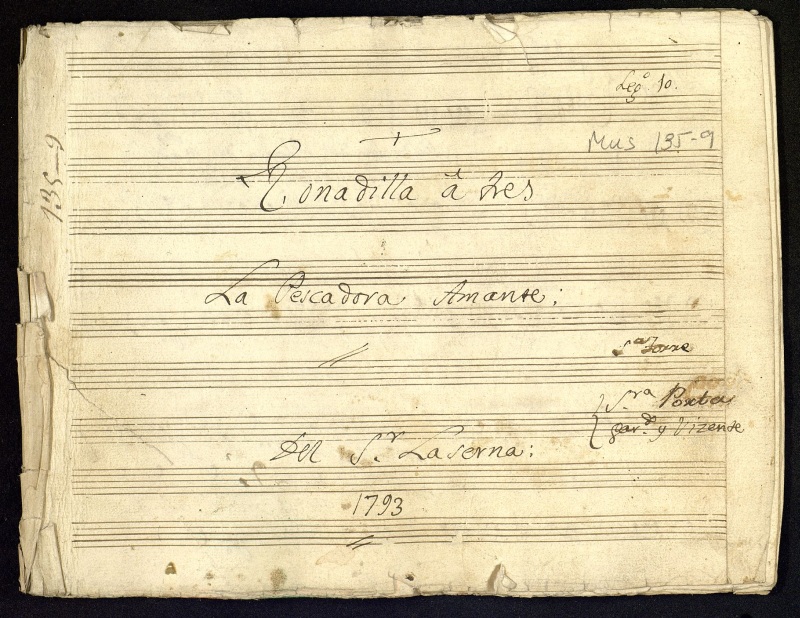 Leg.º 10.
Mus 135-9
135-9
Tonadilla á tres
La Pescadora Amante;
S.ª Torre
S.ra Porta
Gar.do y Vizente
Del S.r Laserna;
1793